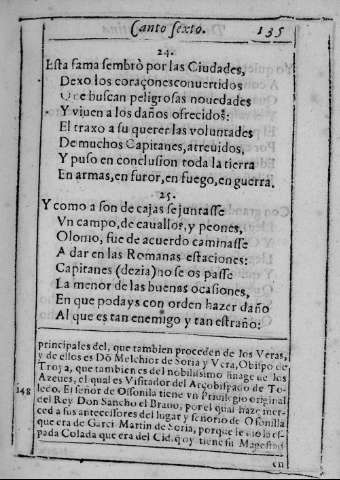 Canto sexto. 135
24.
Esta fama sembrò por las Ciudades,
Dexo los coraçones conuertidos
Que buscan peligrosas nouedades
Y viuen a los daños ofrecidos:
El traxo a su querer las voluntades
De muchos Capitanes, atreuidos,
Y puso en conclusion toda la tierra
En armas, en furor, en fuego, en guerra.
25.
Y como a son de cajas se juntasse
Vn campo, de cauallos, y peones,
Olonio, fue de acuerdo caminasse
A dar en las Romanas estaciones:
Capitanes (dezia) no se os passe
La menor de las buenas ocasiones,
En que podays con orden hazer daño
Al que es tan enemigo y tan estraño:
principales del, que tambien proceden de los Veras,
y de ellos es Dõ Melchior de Soria y Vera, Obispo de
Troya, que tambien es del nobilissimo linage de los
Azeues, el qual es Visitador del Arçobispado de To-
148 ledo. El señor de Ossonila tiene vn Priuilegio original
del Rey Don Sancho el Brauo, por el qual haze mer-
ced a sus antecessores del lugar y señorio de Ossonilla
que era de Garci Martin de Soria, porque le dio la es-
pada Colada que era del Cid, q̃ oy tiene su Magestad
en